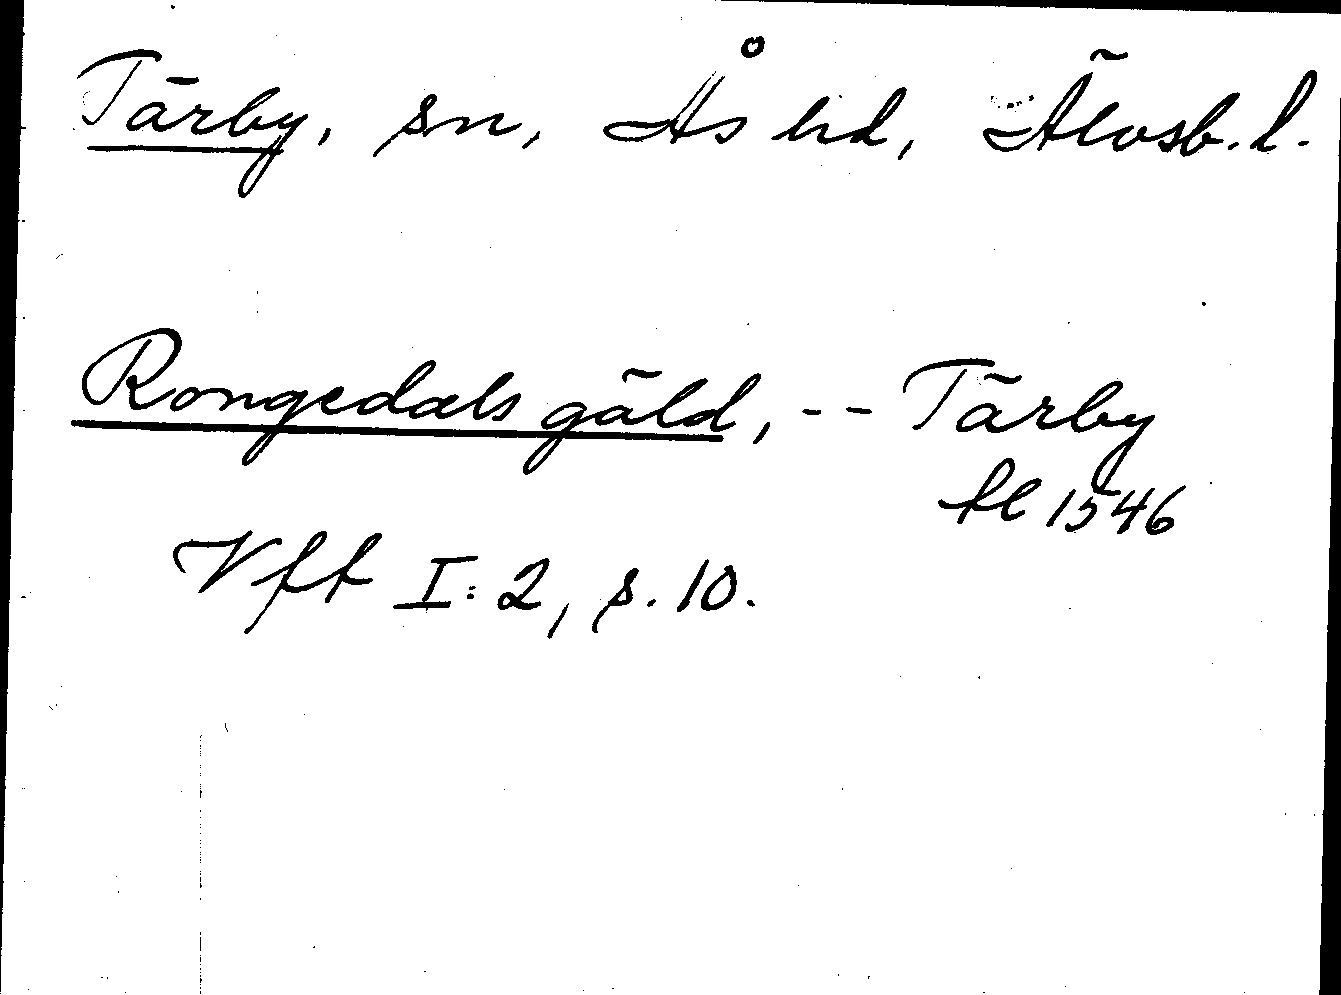 Tärby, sn, Ås hd, Älvsb. l.
Rongedals gäld, -- Tärby
fl 1546
Vff I:2, s. 10.